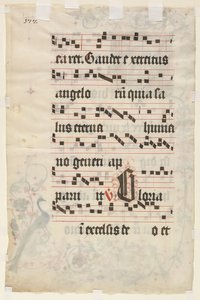 ca ret. Gaudet exercitus
angelo rū quia sa
lus eterna huma
no generi ap
paru it Gloria
in excelsis de o et